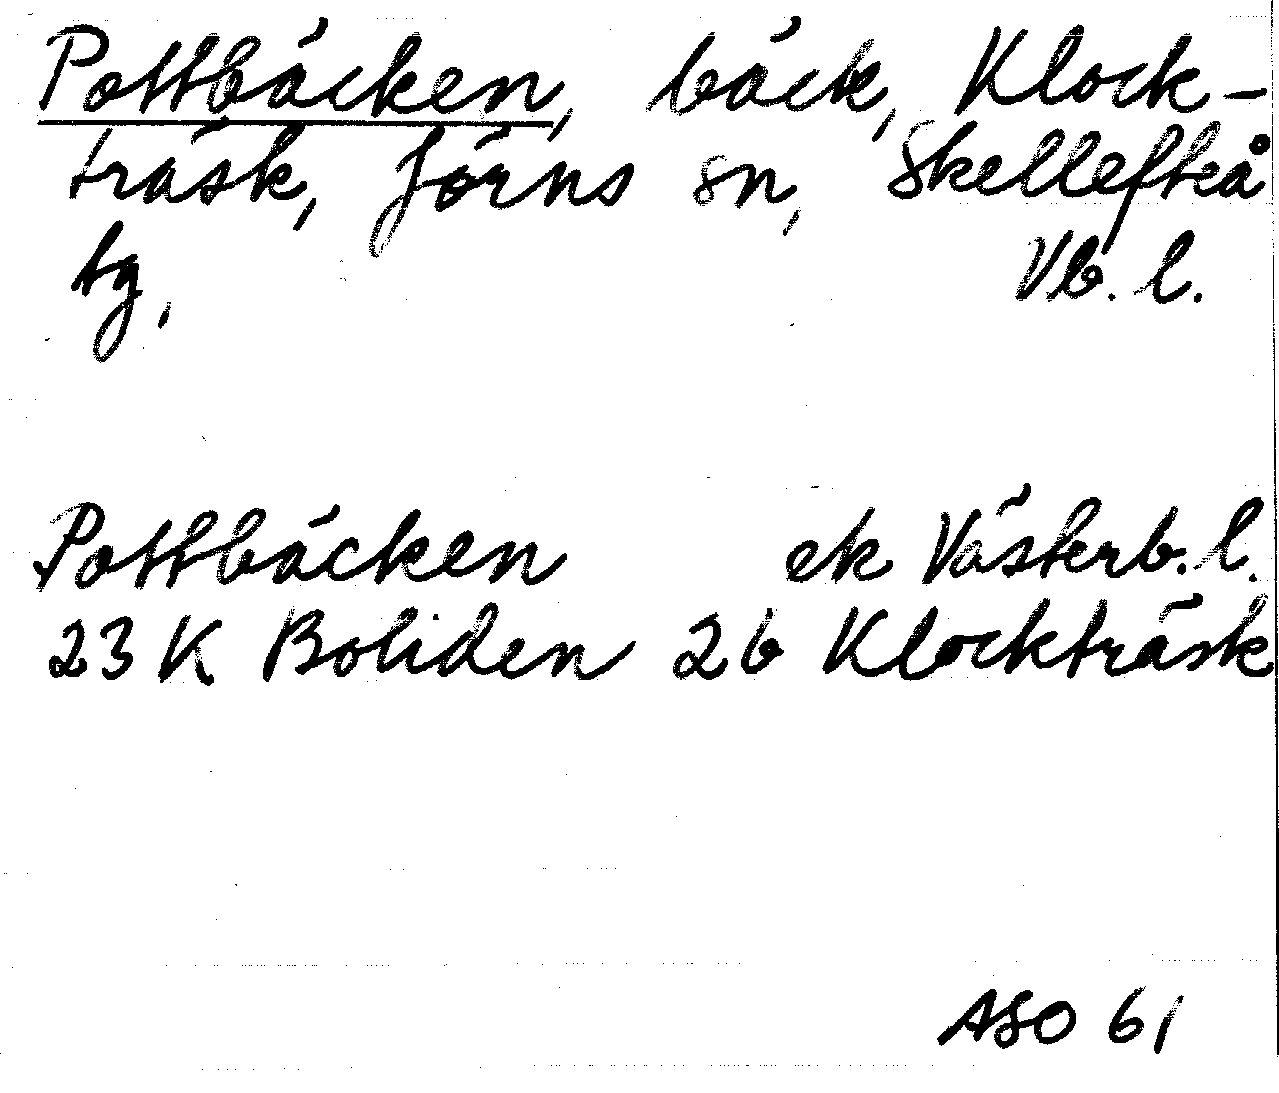 Pottbäcken, bäck, Klock-
träsk, Jörns sn, Skellefteå
tg, Vb. l.
Pottbäcken ek Västerb. l.
23 K Boliden 2b Klockträsk
ASO 61